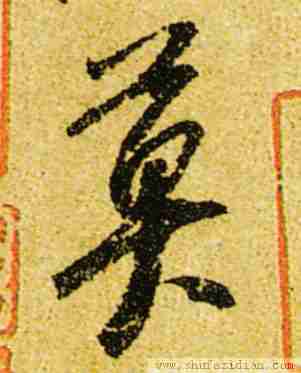 莫
www.shufazidian.com